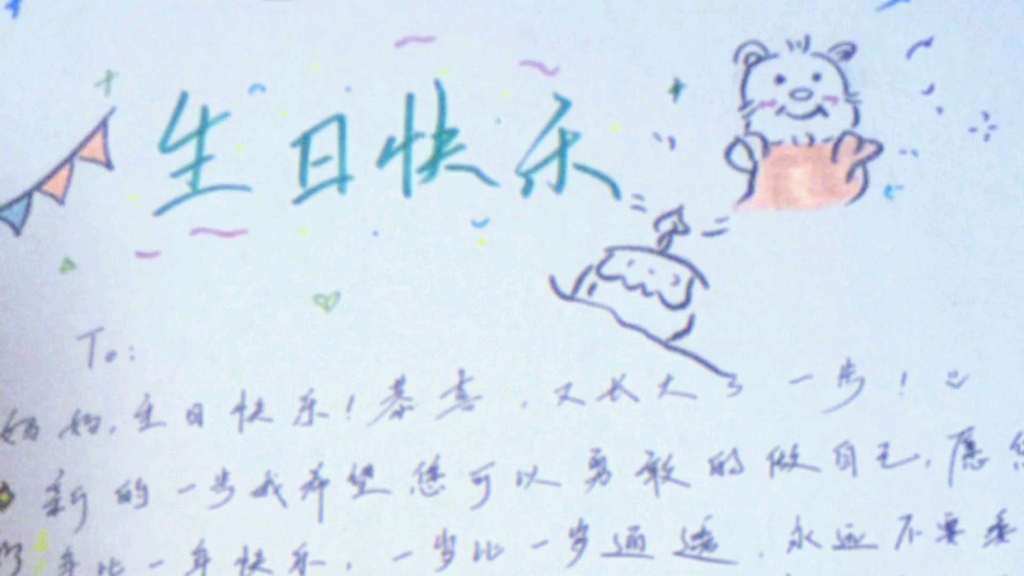 生日快乐
To:
妈妈,生日快乐!恭喜,又长大了一步!
新的一步我希望您可以勇敢的做自己,愿您
年比一年快乐,一岁比一岁通透,永远不要委